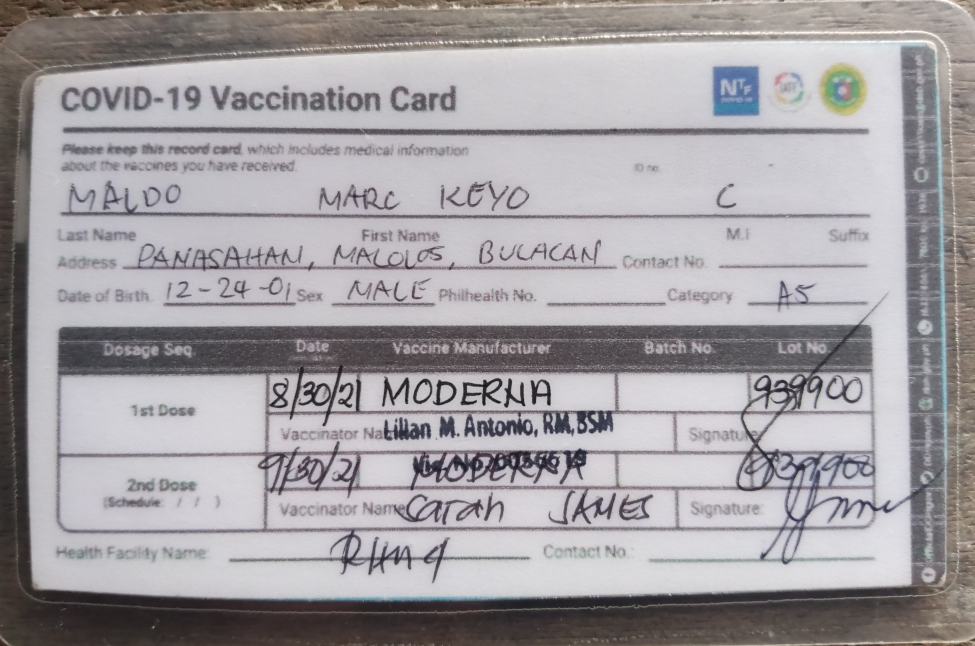 COVID-19 Vaccination Card
NTF
COVID-19
Please keep this record card, which includes medical information
about the vaccines you have received.
ID no.
MALDO MARC KEYO C
Last Name First Name M.I Suffix
Address PANASAHAN, MALOLOS, BULACAN Contact No.
Date of Birth. 12-24-01 Sex MALE Philhealth No. Category A5
Dosage Seq. Date Vaccine Manufacturer Batch No. Lot No.
1st Dose 8/30/21 MODERNA 939900
Vaccinator Na Lilian M. Antonio, RM, BSM Signature
2nd Dose 9/30/21 MODERNA 939900
(Schedule: / / )
Vaccinator Name Sarah JAMES Signature:
Health Facility Name: Contact No.: